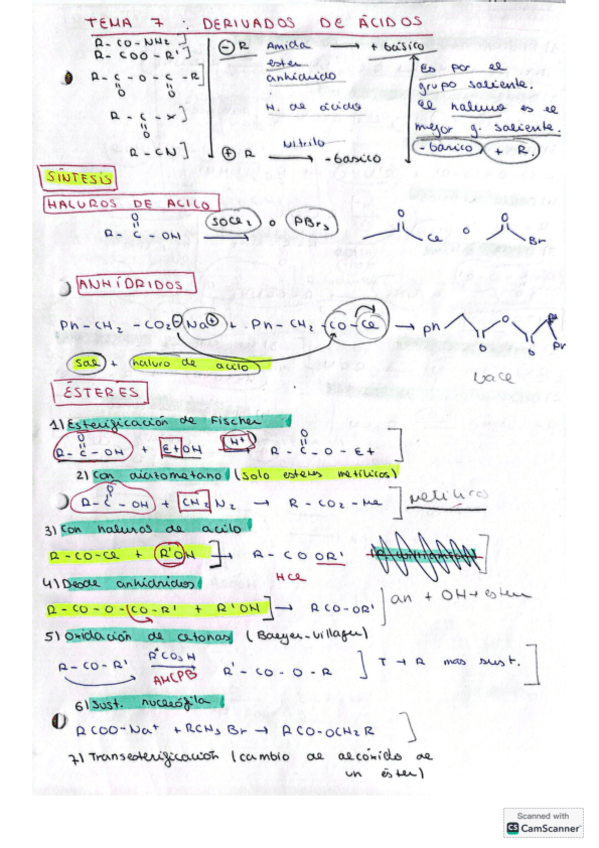 TEMA 7 : DERIVADOS DE ÁCIDOS
R-CO-NH2 ] ⊖ R Amida → + básico
R-COO-R' ] ester
R-C-O-C-R ] anhídrido
O O
H. de ácido
R-C-X ]
O
Nitrilo
R-CN ] ⊕ R → -basico
Es por el
grupo saliente.
el haluro es el
mejor g. saliente.
-básico + R.
SÍNTESIS
HALUROS DE ACILO
O
R-C-OH SOCl2 o PBr3 → O Cl o O Br
ANHÍDRIDOS
Ph-CH2-CO2⊖Na⊕ + Ph-CH2-CO-Cl → Ph O O O
sal + haluro de acilo
ÉSTERES
1) Esterificación de Fischer
O O
R-C-OH + EtOH H+ R-C-O-Et ]
2) Con diazometano (solo esteres metílicos)
O
R-C-OH + CH2N2 → R-CO2-Me ] metílicos
3) Con haluros de acilo
R-CO-Cl + R'OH ] → R-COOR'
HCl
4) Desde anhídridos
R-CO-O-CO-R' + R'OH ] → RCO-OR' ] an + OH → ester
5) Oxidación de cetonas (Baeyer-Villager)
R-CO-R' R''CO3H → R'-CO-O-R ] T → R mas sust. ]
AMCPB
6) Sust. nucleófila
RCOO-Na+ + RCH2Br → RCO-OCH2R ]
7) Transesterificación (cambio de alcóxido de
un éster)
Scanned with
CS CamScanner